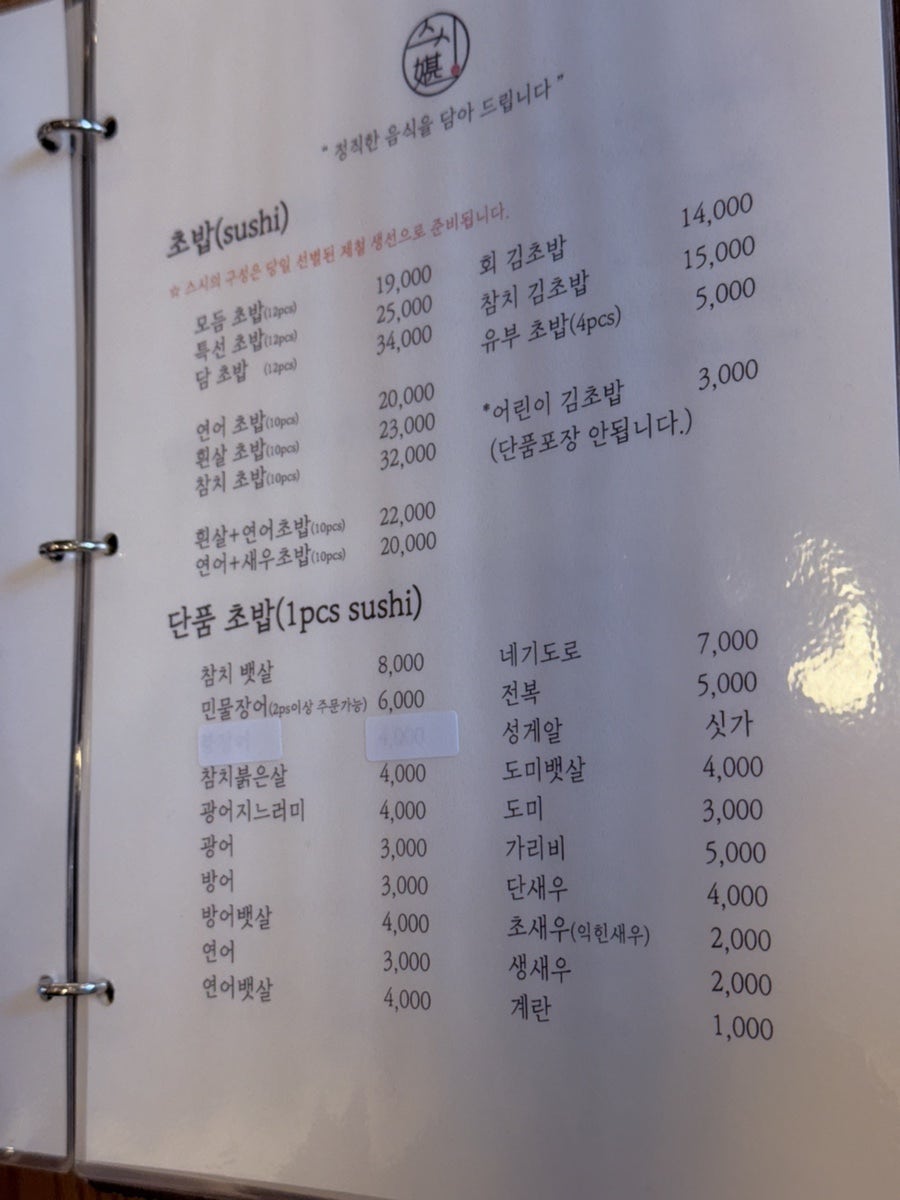 스시
媅
“ 정직한 음식을 담아 드립니다 ”
초밥(sushi)
☆ 스시의 구성은 당일 선별된 제철 생선으로 준비됩니다.
모듬 초밥(12pcs) 19,000
특선 초밥(12pcs) 25,000
담 초밥 (12pcs) 34,000
연어 초밥(10pcs) 20,000
흰살 초밥(10pcs) 23,000
참치 초밥(10pcs) 32,000
흰살+연어초밥(10pcs) 22,000
연어+새우초밥(10pcs) 20,000
회 김초밥 14,000
참치 김초밥 15,000
유부 초밥(4pcs) 5,000
*어린이 김초밥 3,000
(단품포장 안됩니다.)
단품 초밥(1pcs sushi)
참치 뱃살 8,000
민물장어(2ps이상 주문가능) 6,000
4,000
참치붉은살 4,000
광어지느러미 4,000
광어 3,000
방어 3,000
방어뱃살 4,000
연어 3,000
연어뱃살 4,000
네기도로 7,000
전복 5,000
성게알 싯가
도미뱃살 4,000
도미 3,000
가리비 5,000
단새우 4,000
초새우(익힌새우) 2,000
생새우 2,000
계란 1,000